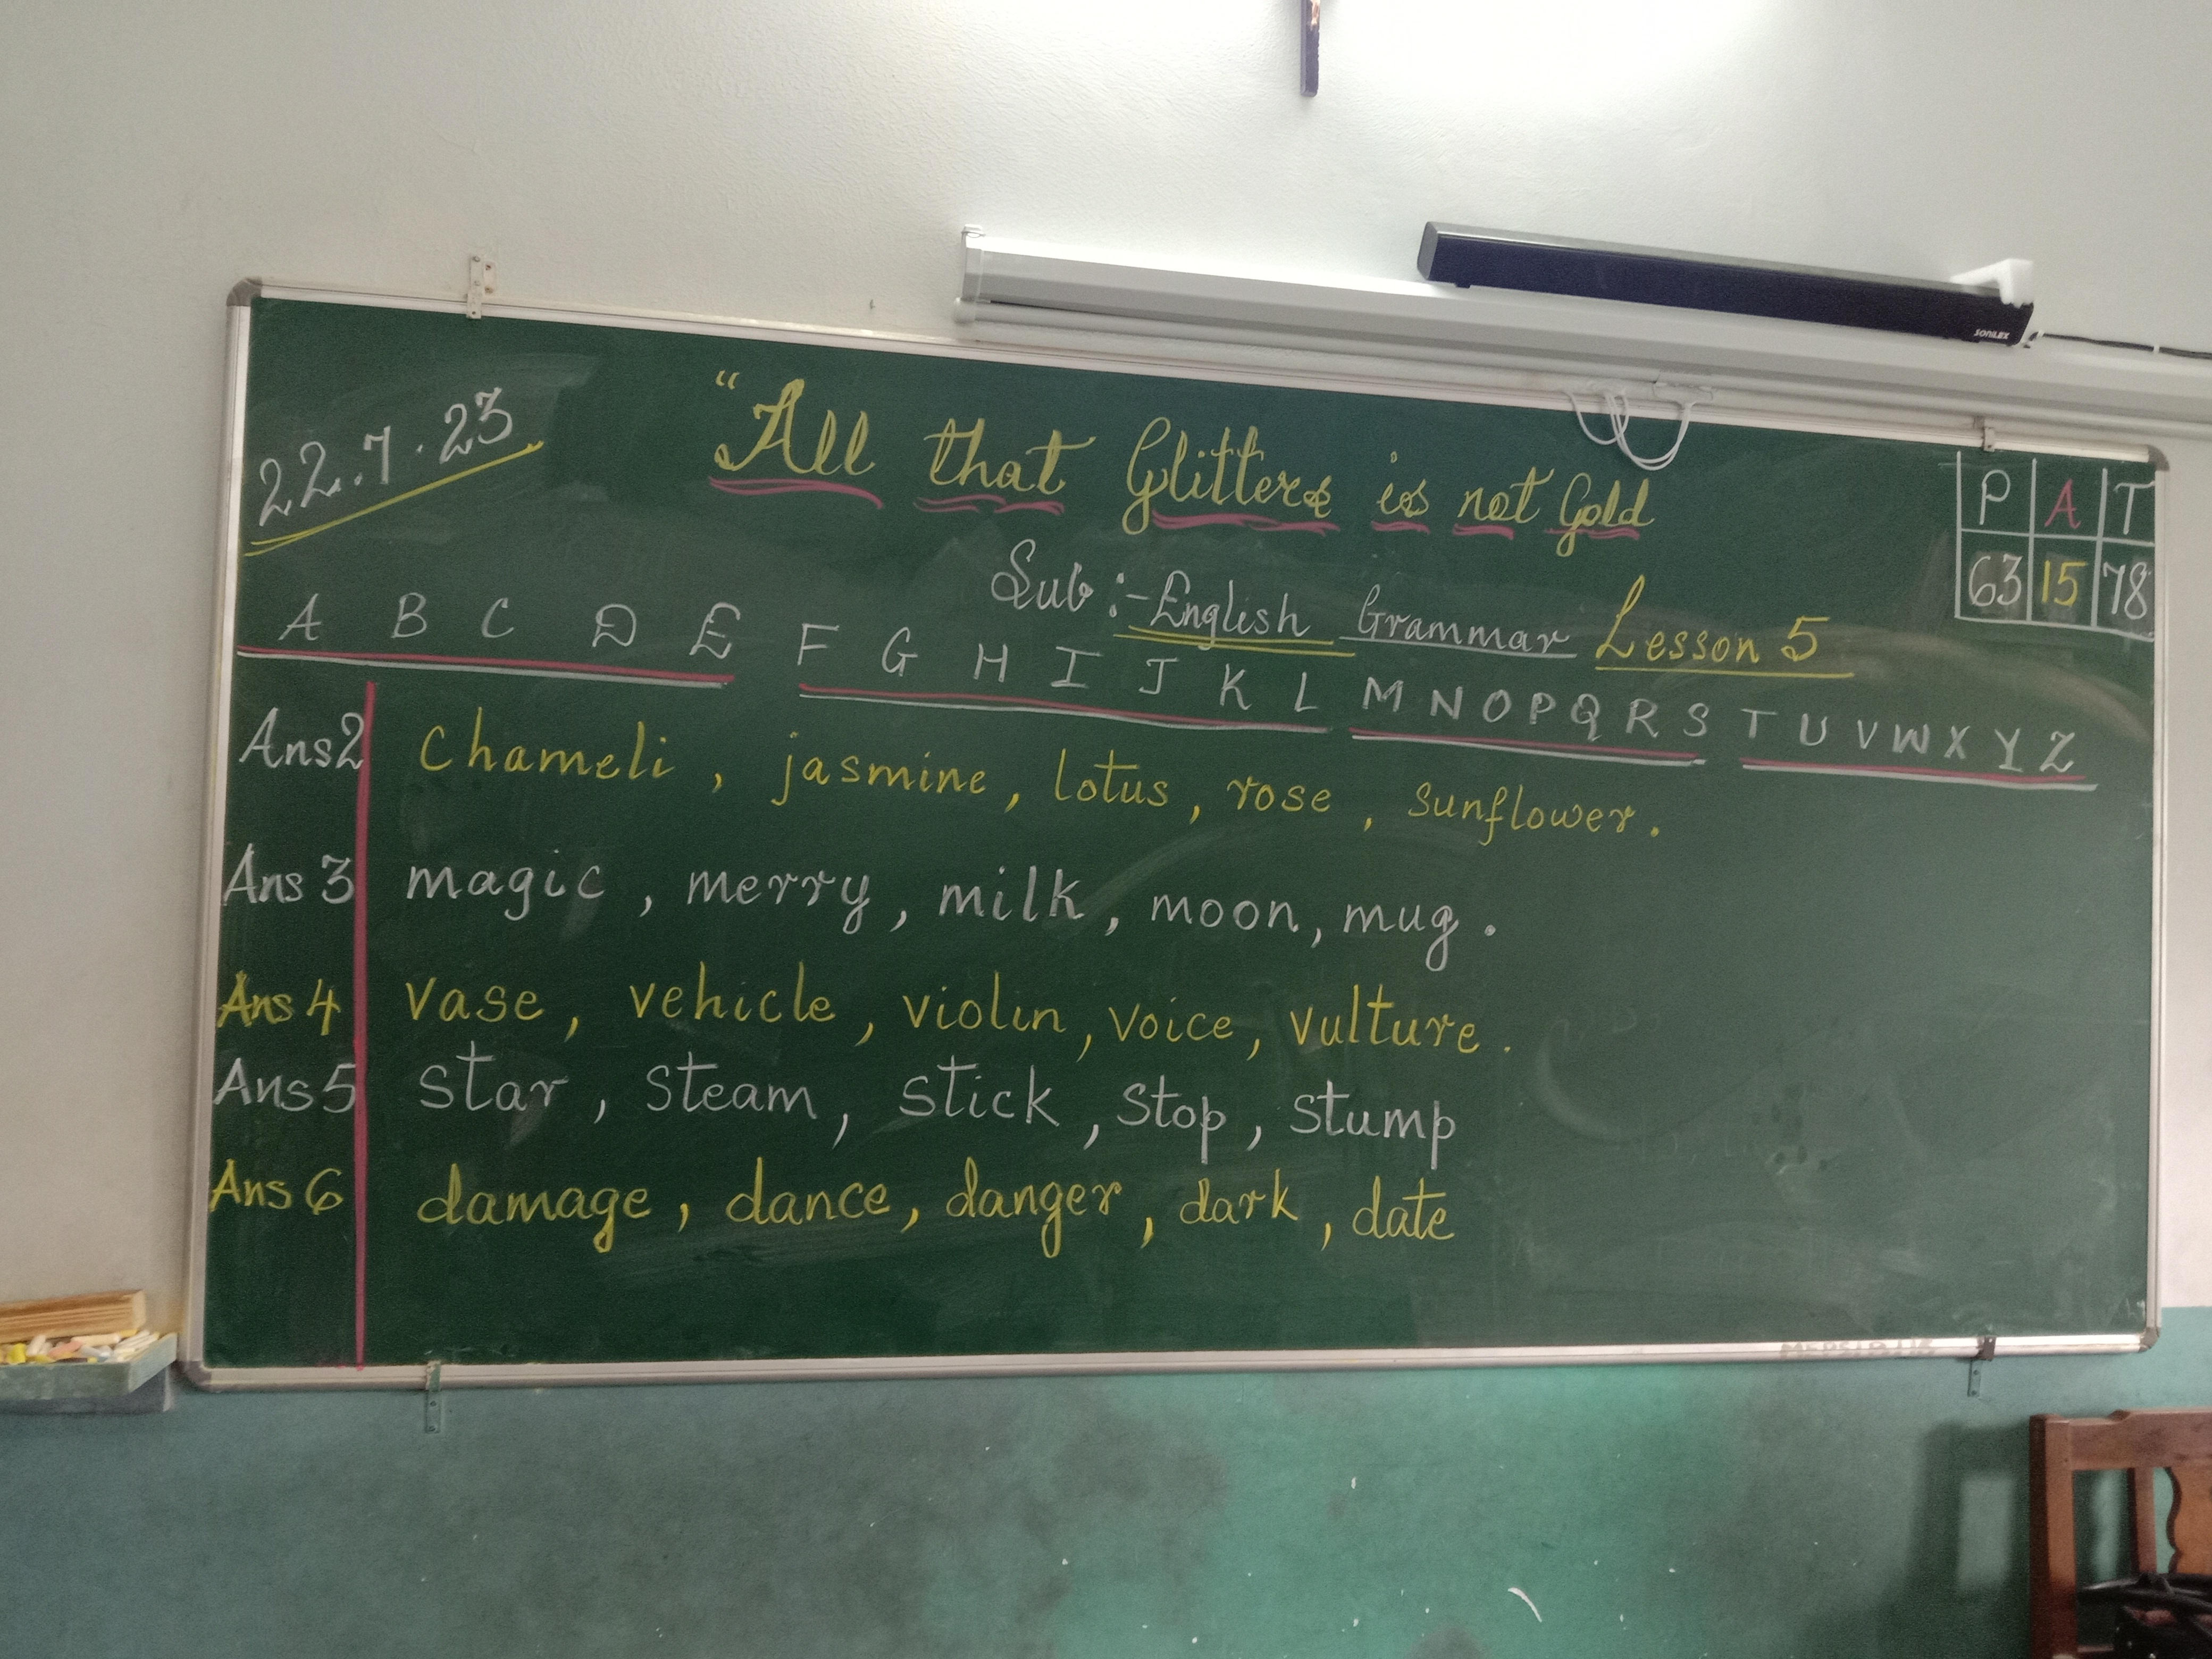 SONILEX
22.7.23
"All that Glitters is not Gold
P A T
63 15 78
Sub:- English Grammar Lesson 5
A B C D E F G H I J K L M N O P Q R S T U V W X Y Z
Ans2 Chameli, jasmine, lotus, rose, sunflower.
Ans 3 magic, merry, milk, moon, mug.
Ans 4 vase, vehicle, violin, voice, vulture.
Ans 5 star, steam, stick, stop, stump
Ans 6 damage, dance, danger, dark, date